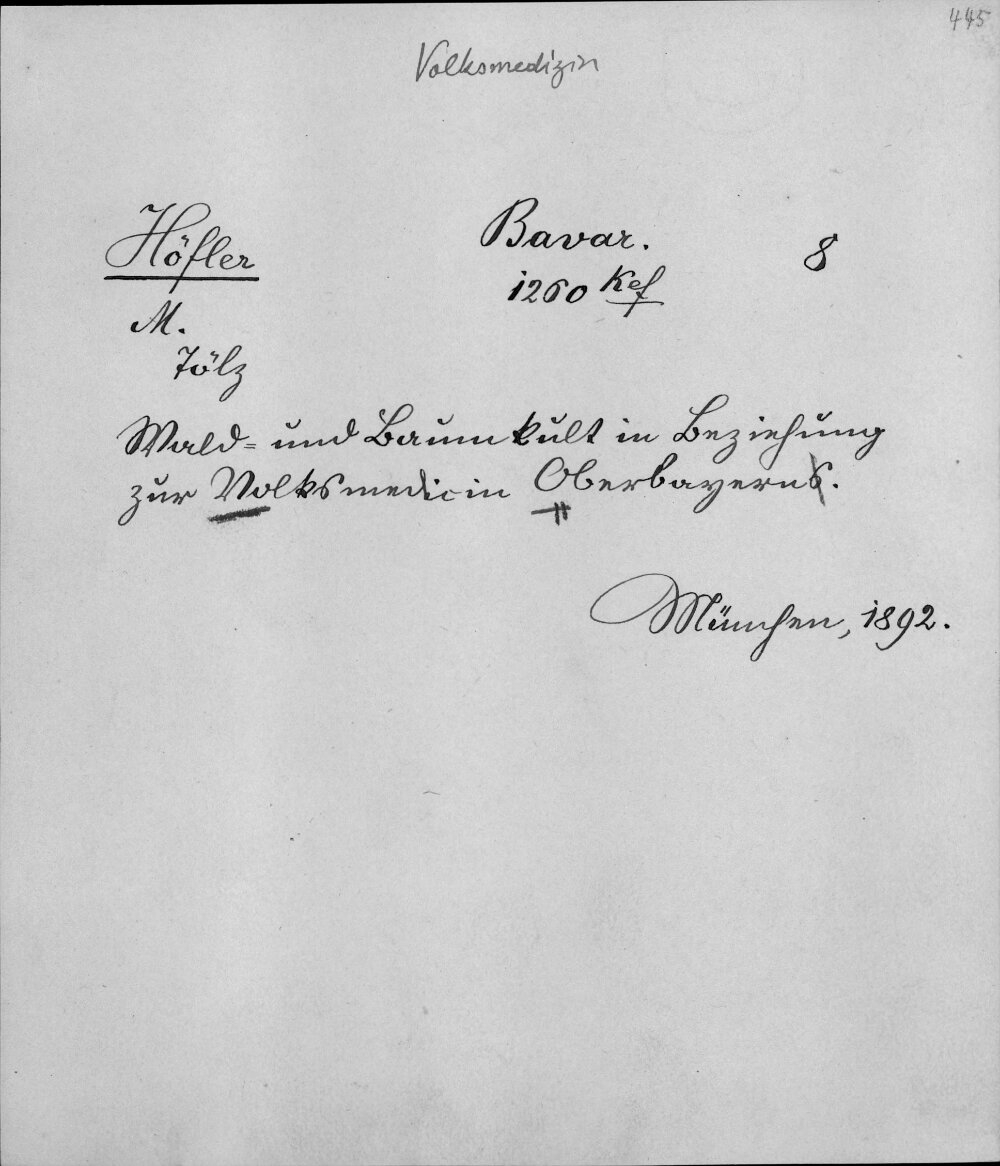 445
Volksmedizin
Höfler
Bavar.
8
1260 Kef
M.
Tölz
Wald- und Baumkult in Beziehung
zur Volksmedicin Oberbayerns.
München, 1892.